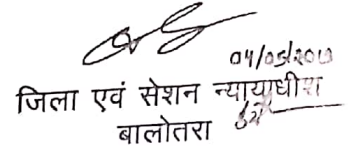 04/05/2017
जिला एवं सेशन न्यायाधीश
बालोतरा